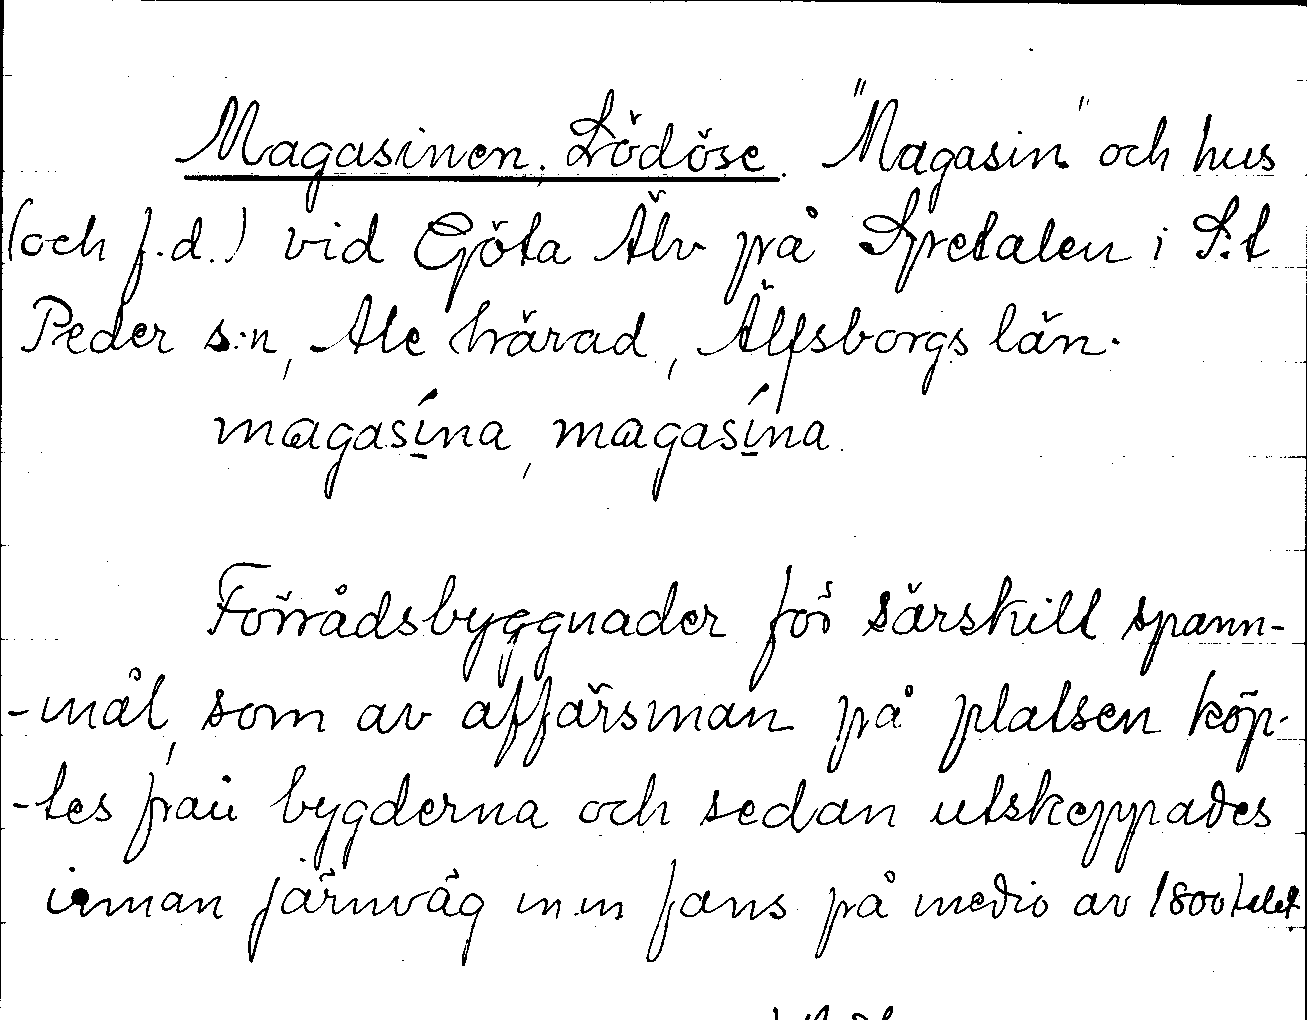 Magasinen, Lödöse. "Magasin" och hus
(och f.d.) vid Göta Älv på Spetalen i S:t
Peder s:n, Ale härad, Älfsborgs län.
magasína, magasína.
Förrådsbyggnader för särskilt spann-
-mål, som av affärsman på platsen köp-
-tes från bygderna och sedan utskeppades
innan järnväg m.m fans på medio av 1800talet.